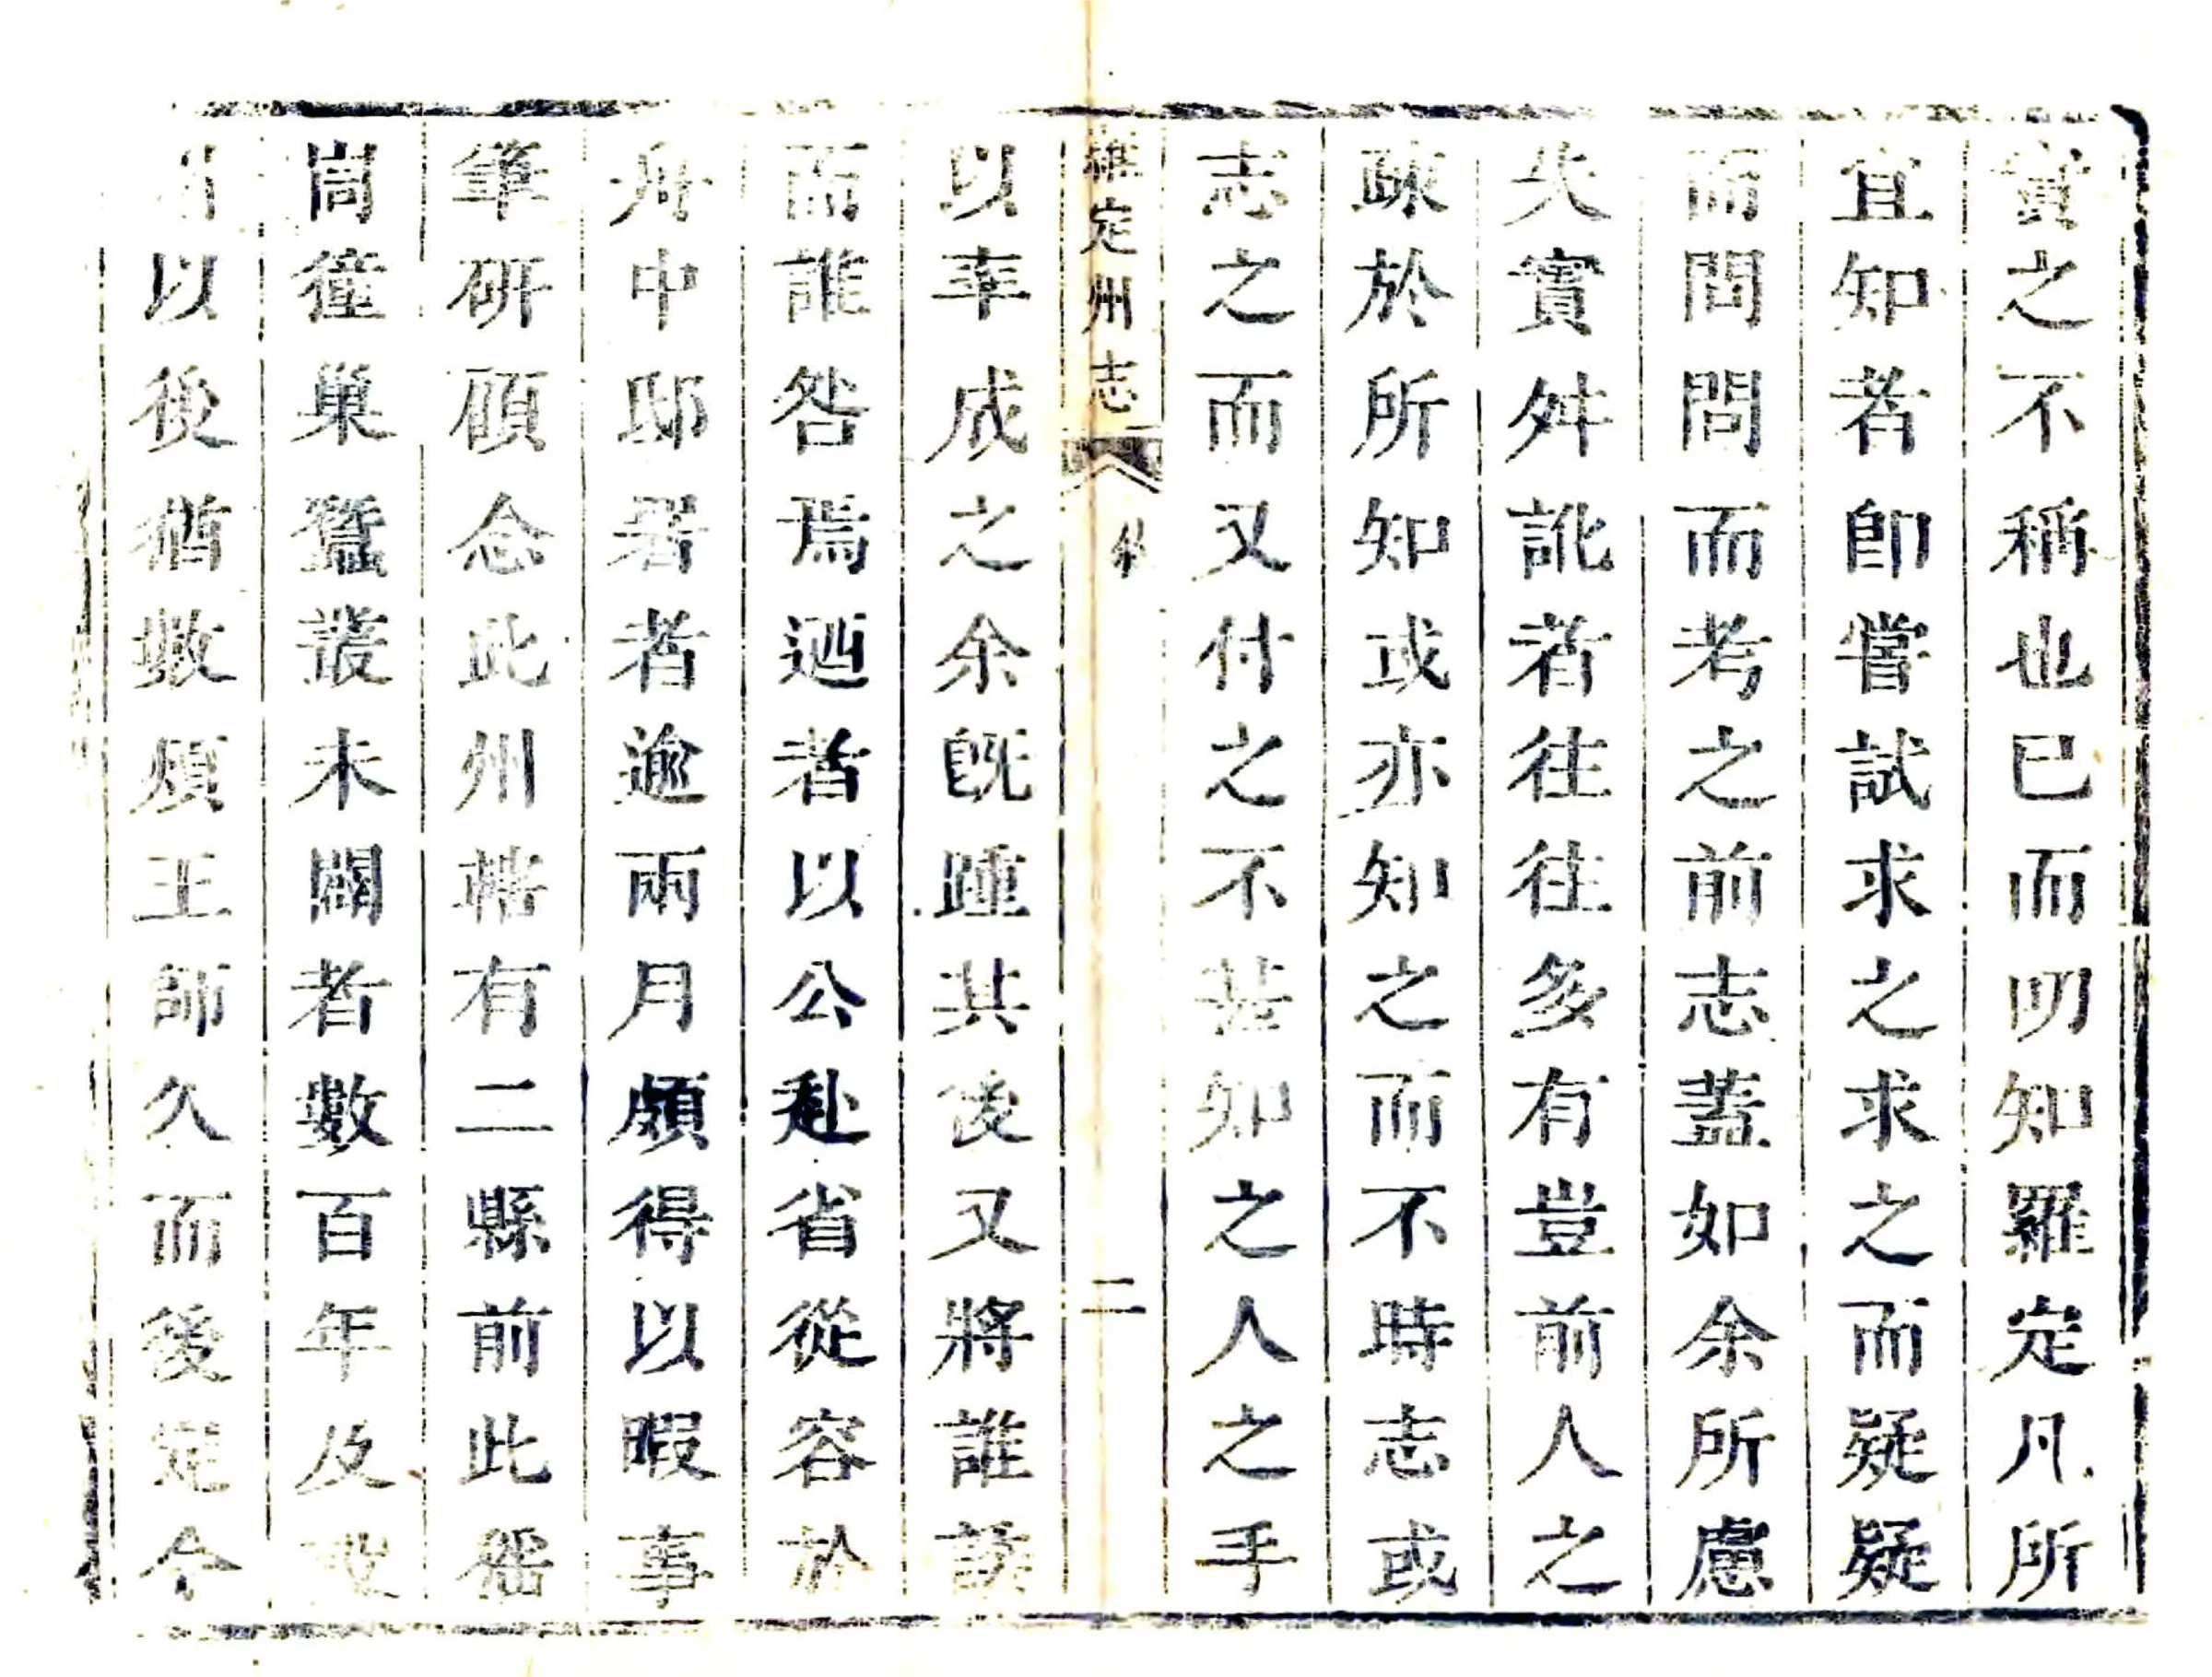 實之不稱也已而明知羅定凡所
宜知者卽嘗試求之求之而疑疑
而問問而考之前志蓋如余所慮
失實舛訛者往往多有豈前人之
疎於所知或亦知之而不時志或
志之而又付之不甚知之人之手
羅定州志
二
以率成之余旣踵其後又將誰諉
而誰咎焉迺者以公赴省從容於
舟中邸署者逾兩月頗得以暇事
筆硏顧念此州轄有二縣前此徭
峝獞巢蠶叢未闢者數百年及設
州以後猶數煩王師久而後定今